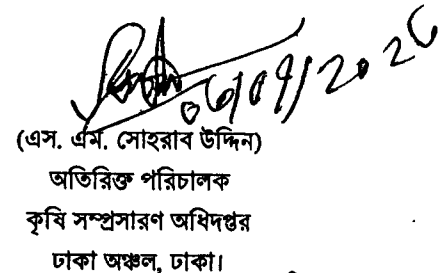 ০৬/০৭/২০২৬
(এস. এম. সোহরাব উদ্দিন)
অতিরিক্ত পরিচালক
কৃষি সম্প্রসারণ অধিদপ্তর
ঢাকা অঞ্চল, ঢাকা।